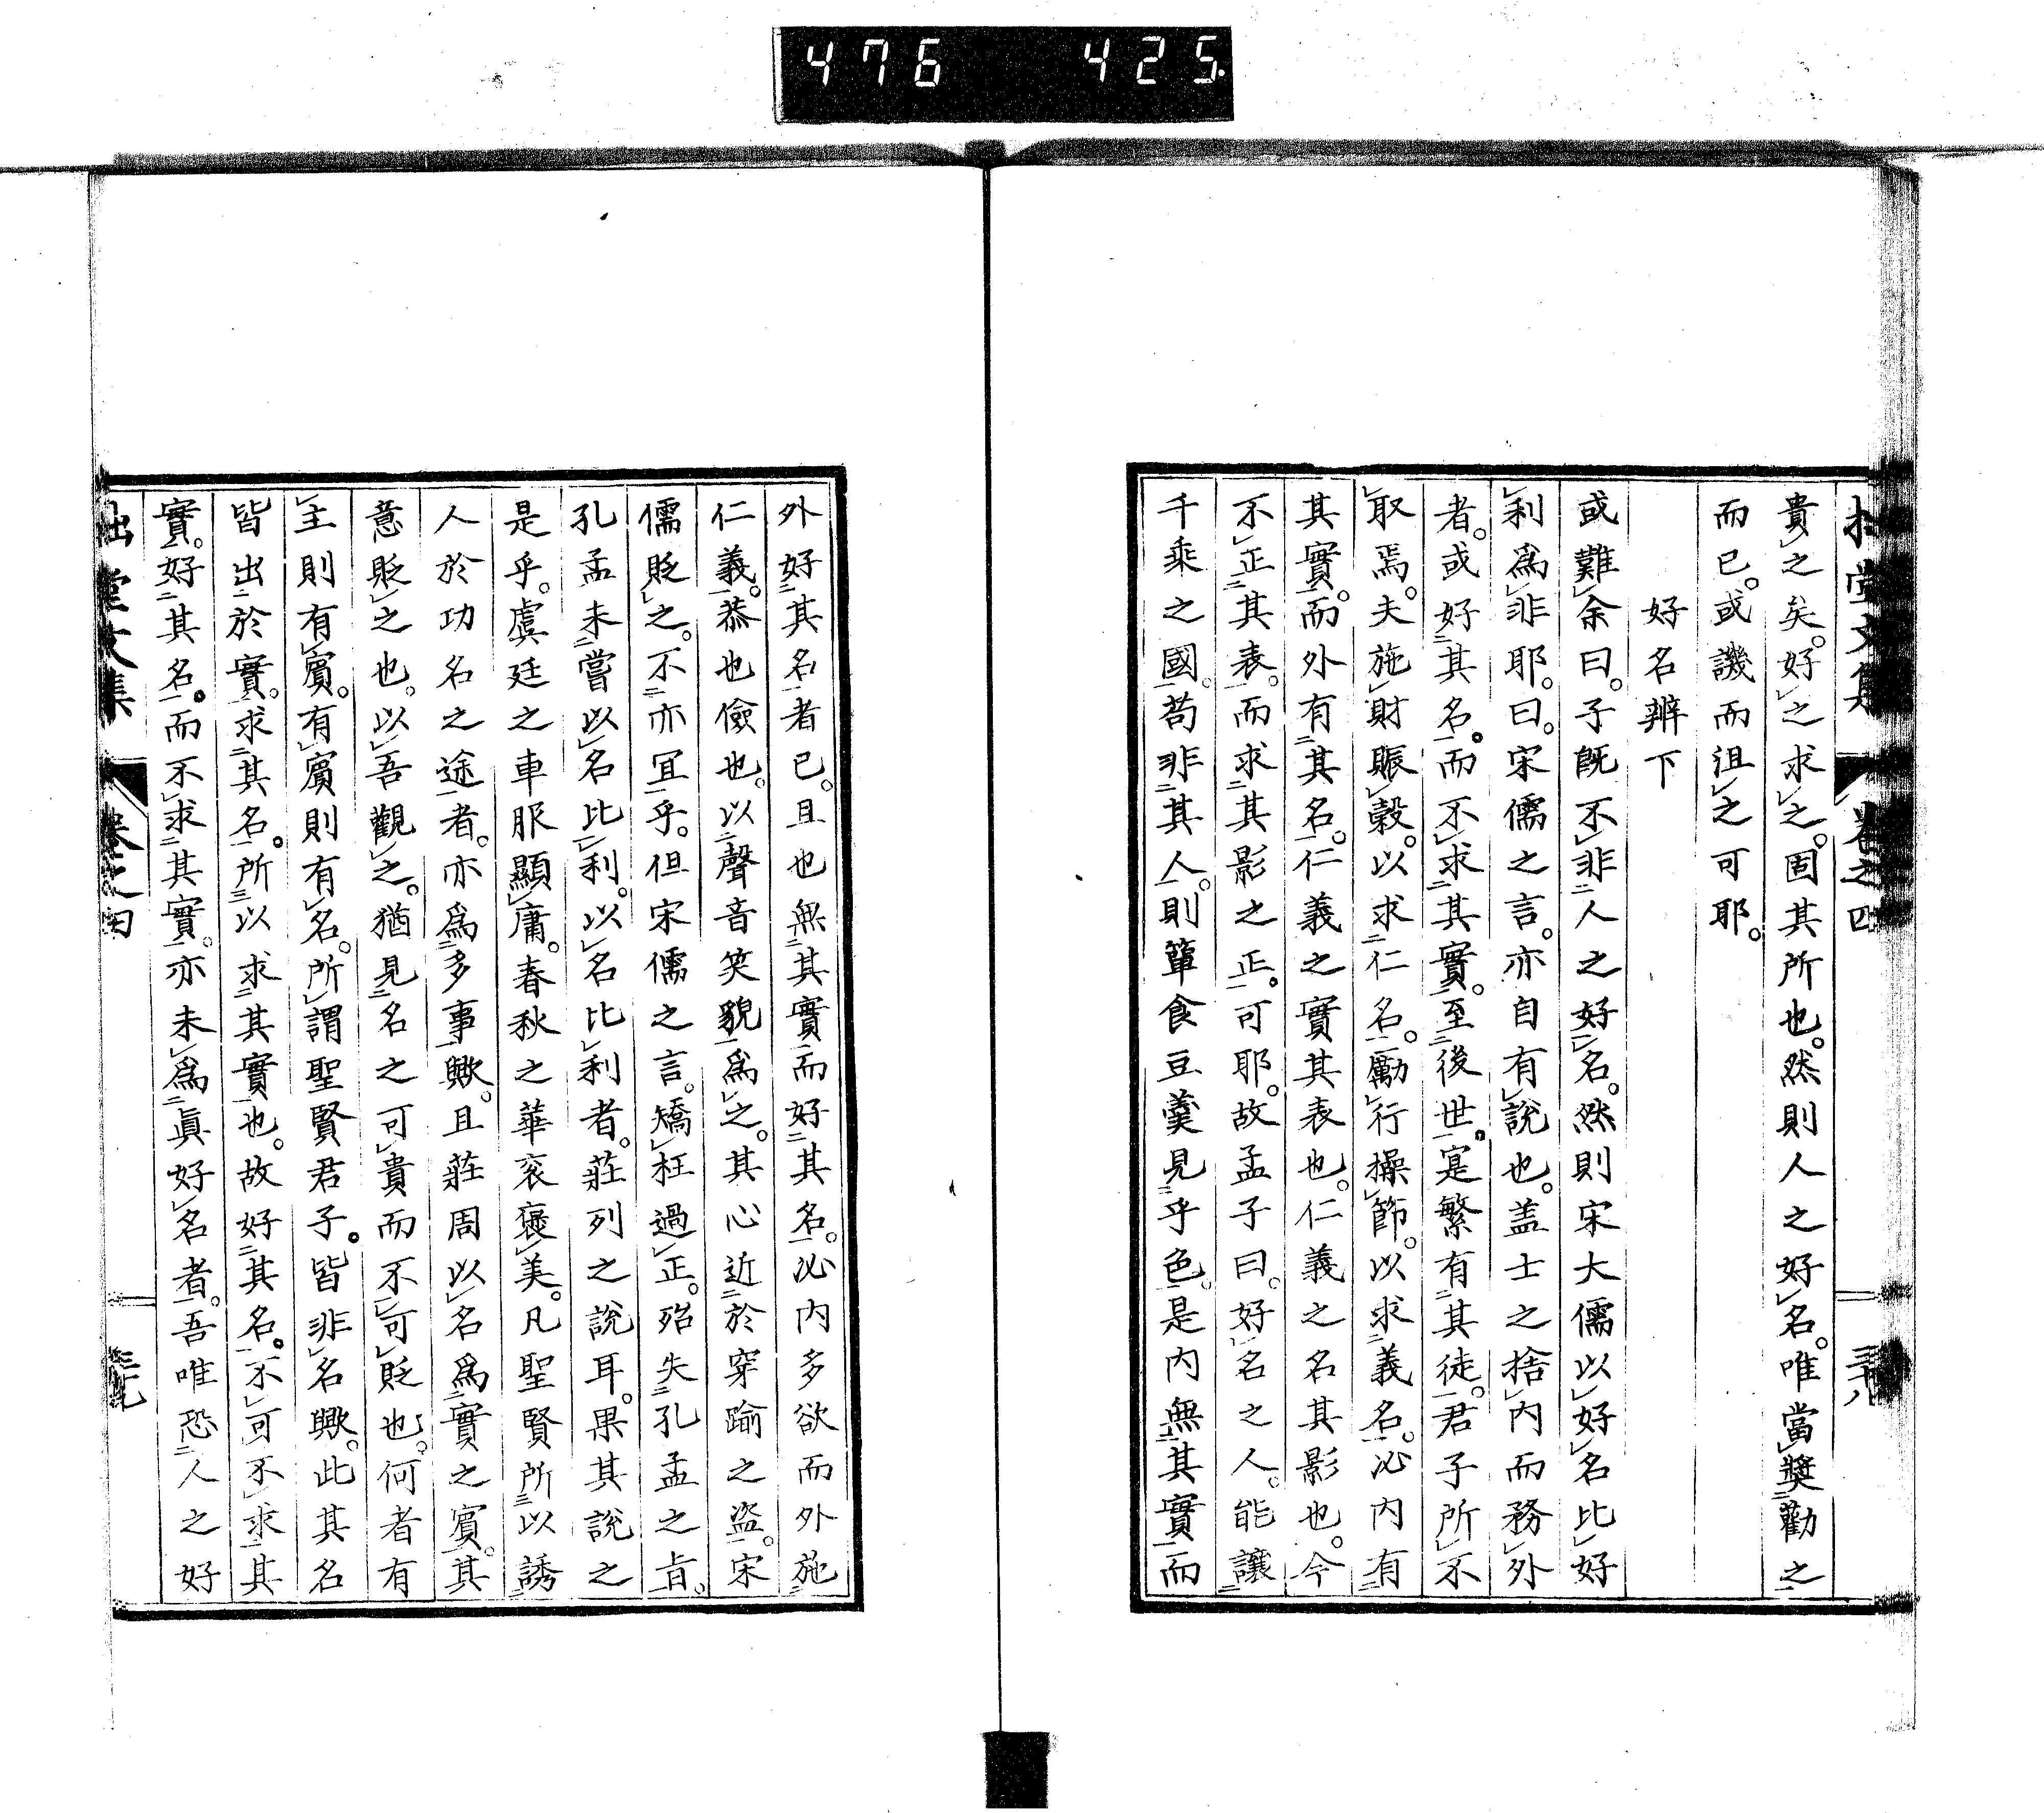 476 425
拙堂文集 卷之四 三十八
貴之矣。好之求之。固其所也。然則人之好名。唯當獎勸之
而已。或譏而沮之可耶。
好名辨下
或難余曰。子既不非人之好名。然則宋大儒以好名比好
利爲非耶。曰。宋儒之言。亦自有說也。盖士之捨内而務外
者。或好其名。而不求其實。至後世。寔繁有其徒。君子所不
取焉。夫施財賑穀。以求仁名。勵行操節。以求義名。必内有
其實。而外有其名。仁義之實其表也。仁義之名其影也。今
不正其表。而求其影之正。可耶。故孟子曰。好名之人。能讓
千乘之國。苟非其人。則簞食豆羹見乎色。是内無其實而
外好其名者已。且也無其實而好其名。必内多欲而外施
仁義。恭也儉也。以聲音笑貌爲之。其心近於穿踰之盗。宋
儒貶之。不亦宜乎。但宋儒之言。矯枉過正。殆失孔孟之旨。
孔孟未嘗以名比利。以名比利者。莊列之說耳。果其說之
是乎。虞廷之車服顯庸。春秋之華衮褒美。凡聖賢所以誘
人於功名之途者。亦爲多事歟。且莊周以名爲實之賓。其
意貶之也。以吾觀之。猶見名之可貴而不可貶也。何者有
主則有賓。有賓則有名。所謂聖賢君子。皆非名歟。此其名
皆出於實。求其名。所以求其實也。故好其名。不可不求其
實。好其名。而不求其實。亦未爲眞好名者。吾唯恐人之好
拙堂文集 卷之四 三十九